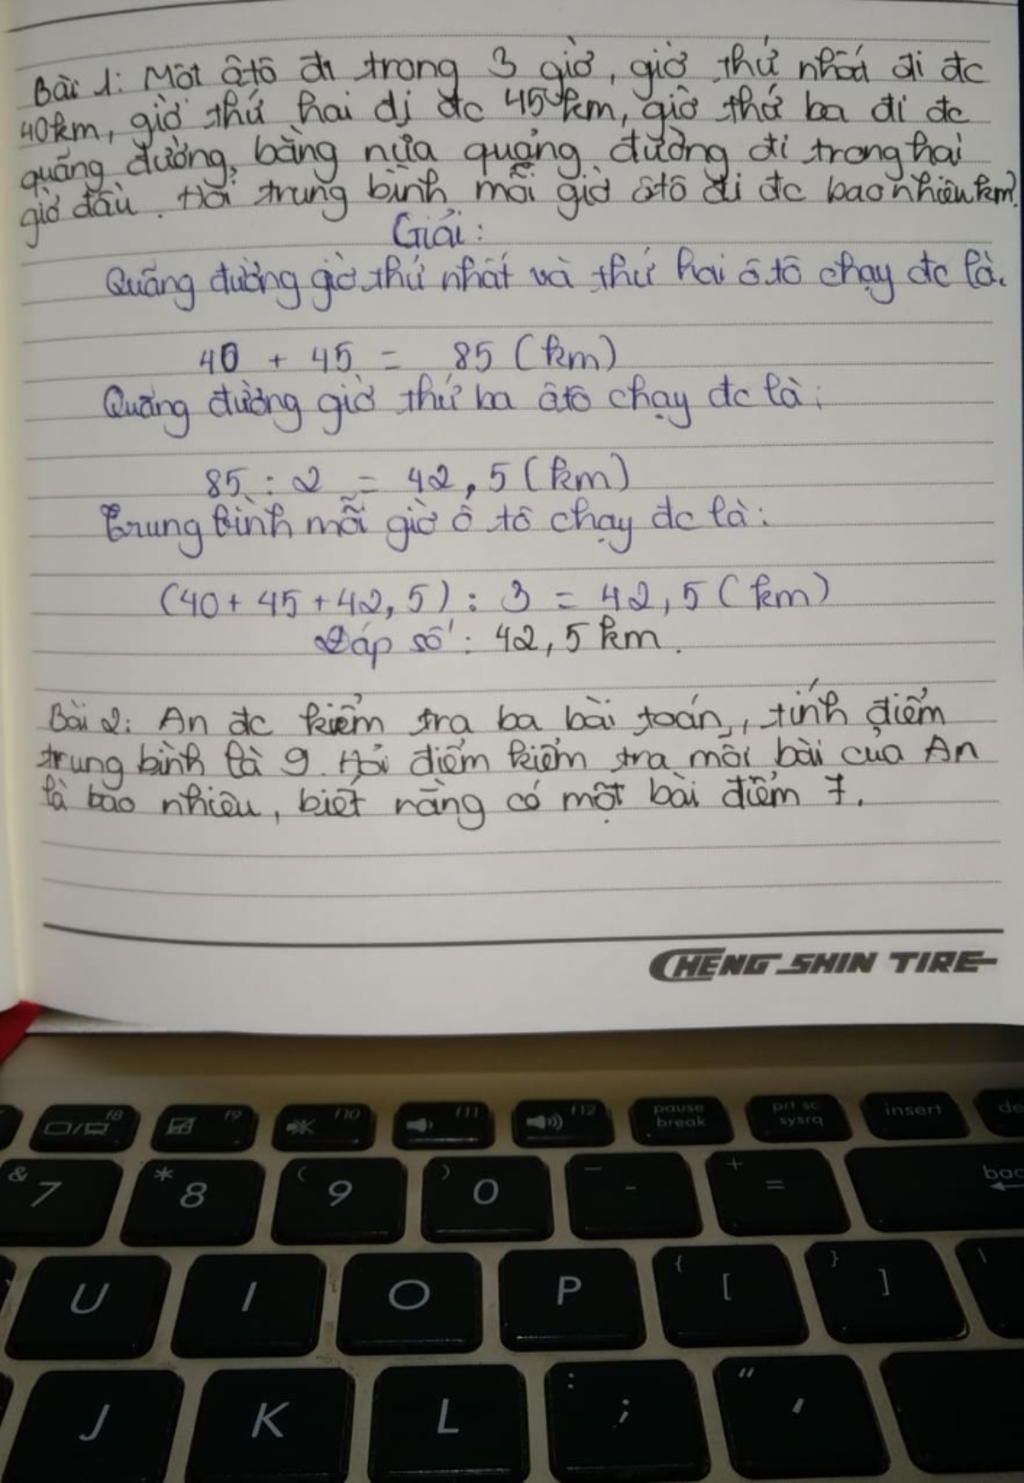 Bài 1: Một ôtô đi trong 3 giờ, giờ thứ nhất đi đc
40km, giờ thứ hai đi đc 45km, giờ thứ ba đi đc
quãng đường, bằng nửa quãng đường đi trong hai
giờ đầu. Hỏi trung bình mỗi giờ ôtô đi đc bao nhiêu km?
Giải:
Quãng đường giờ thứ nhất và thứ hai ô tô chạy đc là.
40 + 45 = 85 (km)
Quãng đường giờ thứ ba ôtô chạy đc là:
85 : 2 = 42,5 (km)
Trung bình mỗi giờ ô tô chạy đc là:
(40 + 45 + 42,5) : 3 = 42,5 (km)
Đáp số: 42,5 km.
Bài 2: An đc kiểm tra ba bài toán, tính điểm
trung bình là 9. Hỏi điểm kiểm tra mỗi bài của An
là bao nhiêu, biết rằng có một bài điểm 7.
CHENG SHIN TIRE
f8 f9 f10 f11 f12 pause break prt sc sysrq insert de
& 7 * 8 ( 9 ) 0 _ - + = bac
U I O P { [ } ] \
J K L : ; " '